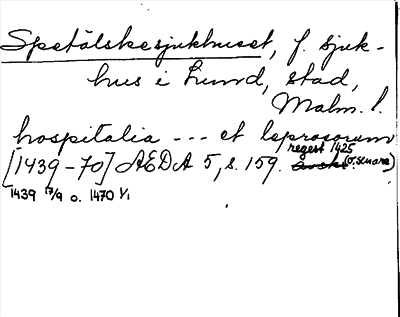 Spetälskesjukhuset, f. sjuk-
hus i Lund, stad,
Malm. l.
hospitalia --- et leprosorum
[1439-70] AEDA 5, s. 159. regest 1425 (o. senare)
1439 17/9 o. 1470 1/1